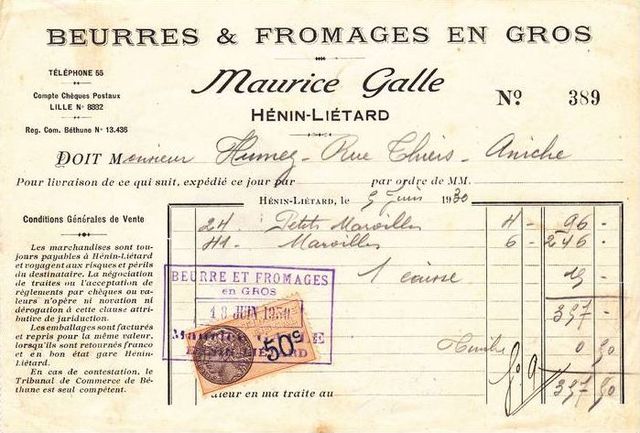 BEURRES & FROMAGES EN GROS
TÉLÉPHONE 55
Compte Chèques Postaux
LILLE N° 8882
Reg. Com. Béthune N° 13.436
Maurice Galle
HÉNIN-LIÉTARD
N° 389
DOIT Monsieur Humez - Rue Thiers - Aniche
Pour livraison de ce qui suit, expédié ce jour par par ordre de MM.
HÉNIN-LIÉTARD, le juin 1930
Conditions Générales de Vente
Les marchandises sont tou-
jours payables à Hénin-Liétard
et voyagent aux risques et périls
du destinataire. La négociation
de traites ou l'acceptation de
règlements par chèques ou va-
leurs n'opère ni novation ni
dérogation à cette clause attri-
butive de juriduction.
Les emballages sont facturés
et repris pour la même valeur,
lorsqu'ils sont retournés franco
et en bon état gare Hénin-
Liétard.
En cas de contestation, le
Tribunal de Commerce de Bé-
thune est seul compétent.
24 - Petits Maroilles 4 - 96 -
41 - Maroilles 6 - 246 -
1 caisse 15 -
357 -
Timbre 0 50
357 50
BEURRE ET FROMAGES
en GROS
18 JUIN 1930
HÉNIN-LIÉTARD
50c
aleur en ma traite au